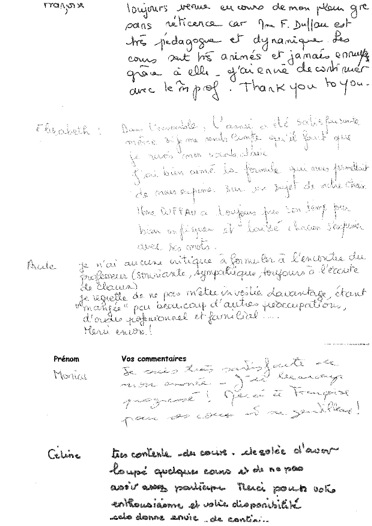 toujours venue en cours de mon plein gré
sans réticence car Mme F. Duffau est
très pédagogue et dynamique. Les
cours sont très animés et jamais ennuyeux
grâce à elle. J'ai envie de continuer
avec le m̂ prof. Thank you to you.
Elisabeth : Dans l'ensemble, l'année a été satisfaisante
même si je me rends compte qu'il faut que
je
j'ai bien aimé la formule qui nous permettait
de nous exprimer sur un sujet de notre choix
Mme DUFFAU a toujours pris son temps pour
bien expliquer et laissé chacun s'exprimer
avec ses mots.
je n'ai aucune critique à formuler à l'encontre du
professeur (souriante, sympathique, toujours à l'écoute
de l'autre)
je regrette de ne pas m'être investie davantage, étant
"mangée" par beaucoup d'autres préoccupations,
d'ordre professionnel et familial ....
Merci encore !
Prénom Vos commentaires
Je suis très satisfaite de
mon année - j'ai beaucoup
progressé ! Merci à Françoise
pour ses cours et sa gentillesse !
Céline très contente du cours. désolée d'avoir
loupé quelques cours et de ne pas
assez participé Merci pour votre
enthousiasme et votre disponibilité
cela donne envie de continuer